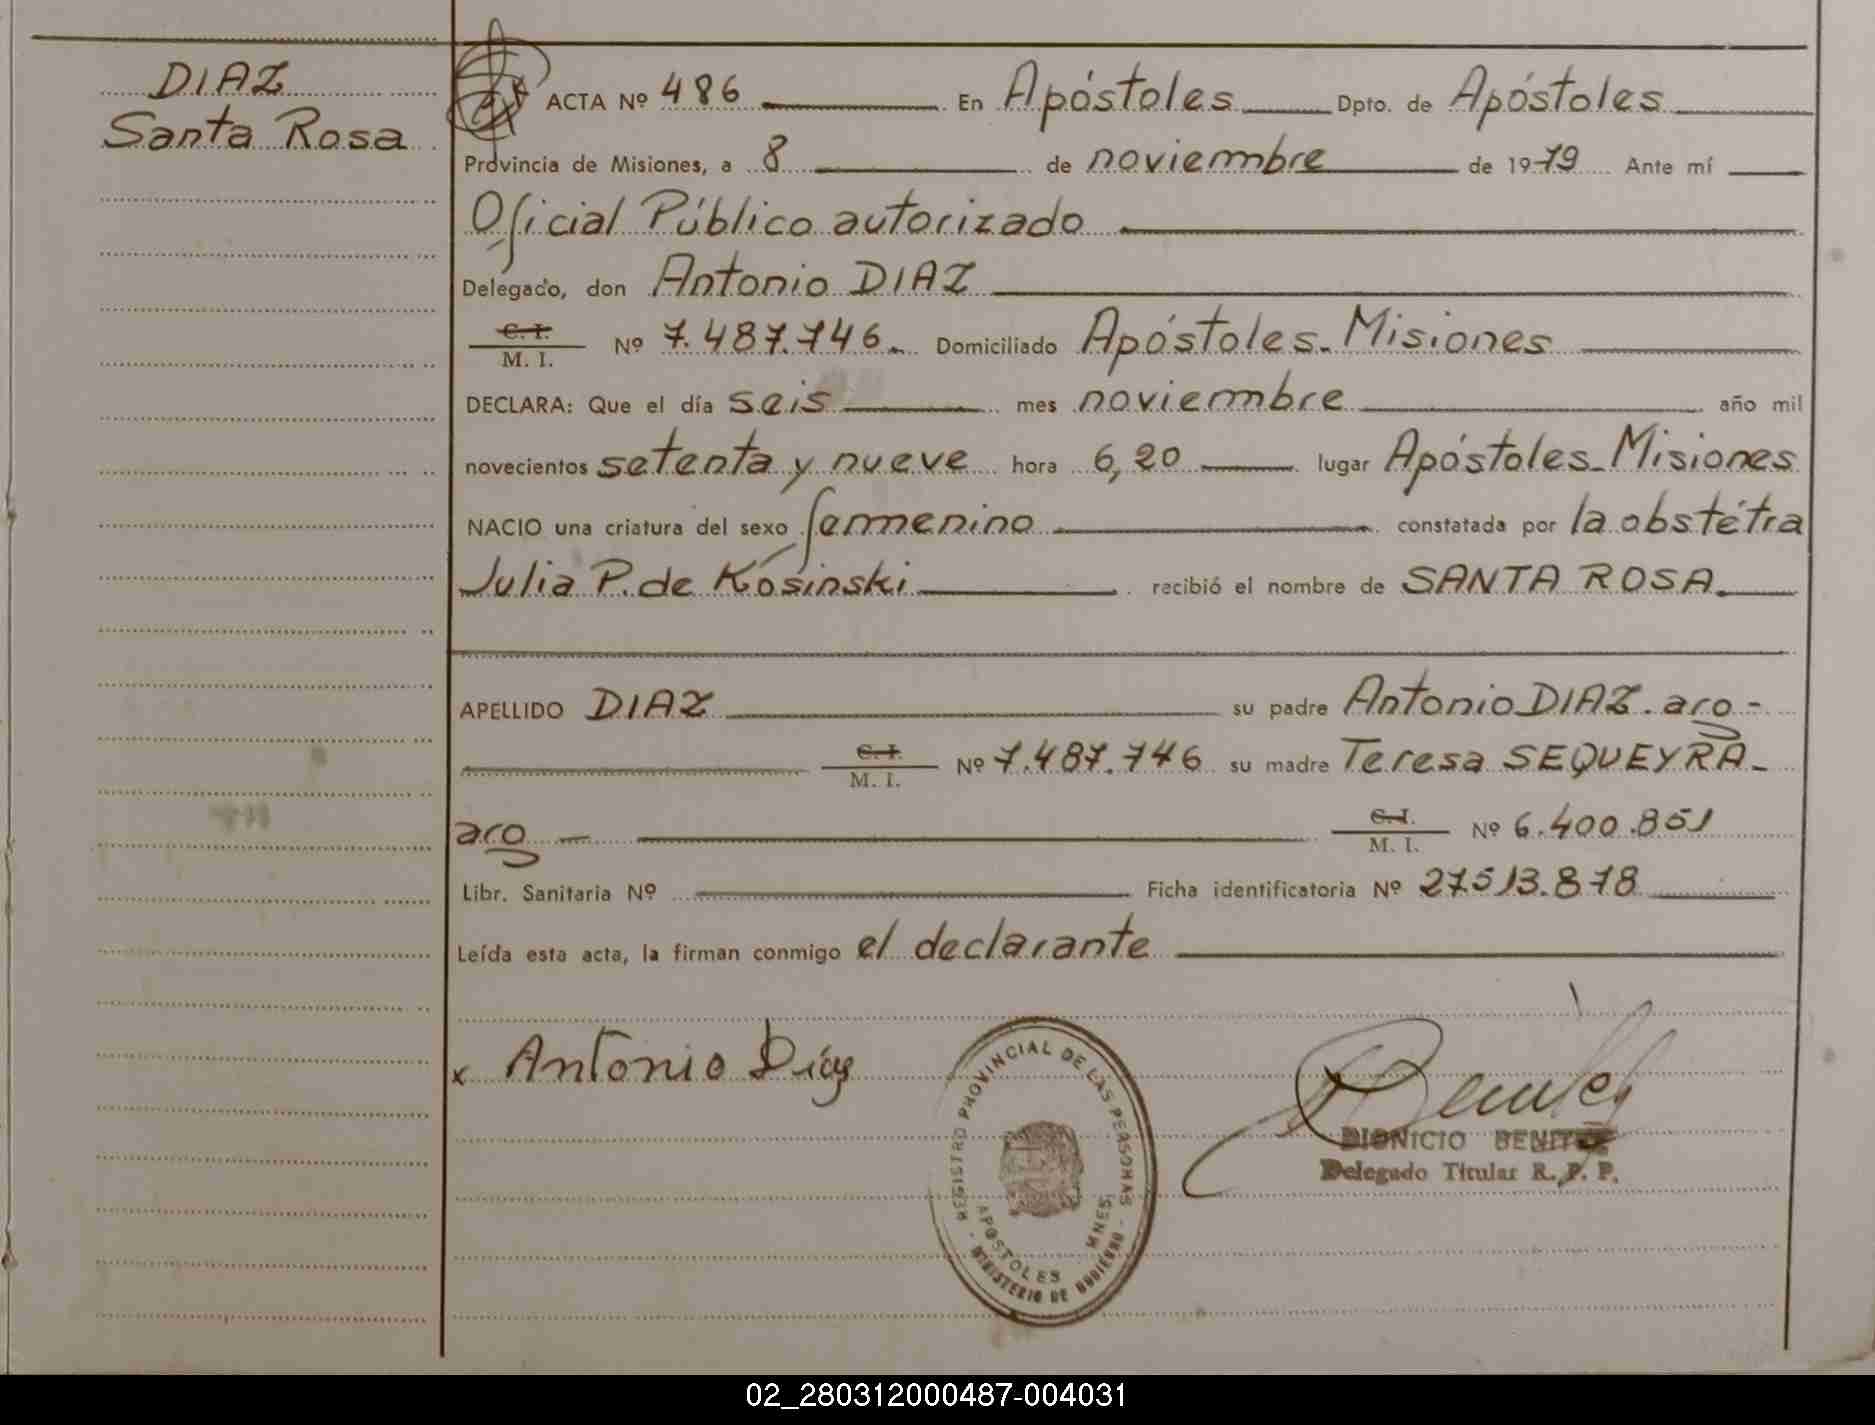 DIAZ
Santa Rosa
ACTA Nº 486 En Apóstoles Dpto. de Apóstoles
Provincia de Misiones, a 8 de noviembre de 1979 Ante mí
Oficial Público autorizado
Delegado, don Antonio DIAZ
C. I.
M. I. Nº 7.487.746. Domiciliado Apóstoles - Misiones
DECLARA: Que el día seis mes noviembre año mil
novecientos setenta y nueve hora 6,20 lugar Apóstoles - Misiones
NACIO una criatura del sexo femenino constatada por la obstétra
Julia P. de Kosinski recibió el nombre de SANTA ROSA.
APELLIDO DIAZ su padre Antonio DIAZ. arg -
C. I.
M. I. Nº 7.487.746 su madre Teresa SEQUEYRA -
arg - C. I.
M. I. Nº 6.400.851
Libr. Sanitaria Nº Ficha identificatoria Nº 27.513.878
Leída esta acta, la firman conmigo el declarante
x Antonio Díaz
REGISTRO PROVINCIAL DE LAS PERSONAS
APOSTOLES MNES
- MINISTERIO DE GOBIERNO -
DIONICIO BENITEZ
Delegado Titular R. P. P.
02_280312000487-004031